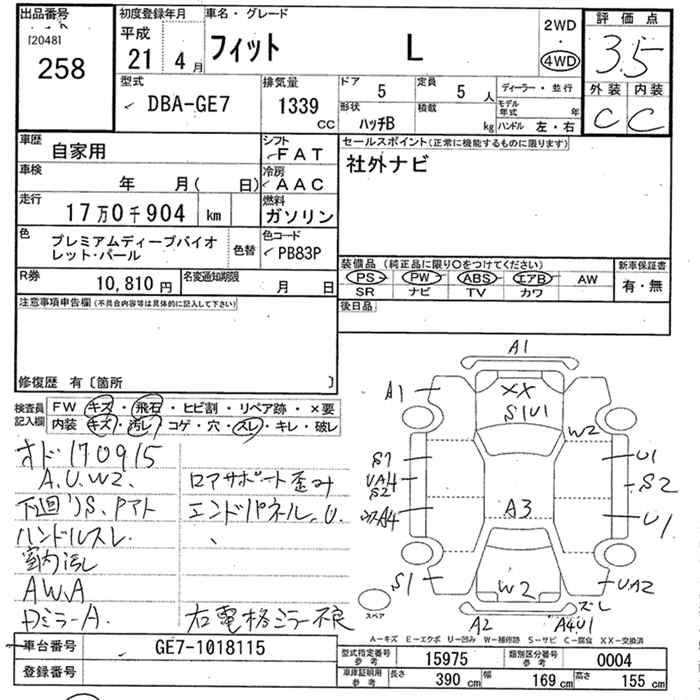 出品番号
[2048]
258
初度登録年月
平成
21 4月
車名・グレード
フィット L
2WD
・
4WD
評価点
3.5
外装 内装
C C
型式
DBA-GE7
排気量
1339
CC
ドア
5
定員
5人
形状
ハッチB
積載
kg
ディーラー・並行
モデル年式 年
ハンドル 左・右
車歴
自家用
シフト
FAT
車検
年 月( 日)
冷房
AAC
走行
17万0千904 km
燃料
ガソリン
色
プレミアムディープバイオ
レット・パール
色替
色コード
PB83P
R券
10,810円
名変通知期限
月 日
セールスポイント(正常に機能するものに限ります)
社外ナビ
装備品(純正品に限り○をつけてください)
PS PW ABS エアB AW
SR ナビ TV カワ
新車保証書
有・無
後日品
注意事項申告欄(不具合内容等は具体的に記入して下さい)
修復歴 有〔箇所 〕
検査員
記入欄
FW キズ・飛石・ヒビ割・リペア跡・×要
内装 キズ・汚レ・コゲ・穴・スレ・キレ・破レ
オド170915
A.U.W2.
下回りS、Pアト
ハンドルスレ
室内汚レ
AW.A
DミラーA.
ロアサポート歪み
エンドパネル.U.
右電格ミラー不良
A1
A1
XX
S1U1
W2
S1
UA4
S2
A4
A3
U1
S2
U1
S1
W2
UA2
スレ
A2
A4U1
スペア
A-キズ E-エクボ U-凹み W-補修跡 S-サビ C-腐食 XX-交換済
車台番号
GE7-1018115
登録番号
型式指定番号
参考
15975
類別区分番号
参考
0004
車庫証明用
参考
長さ 390cm
幅 169cm
高さ 155cm